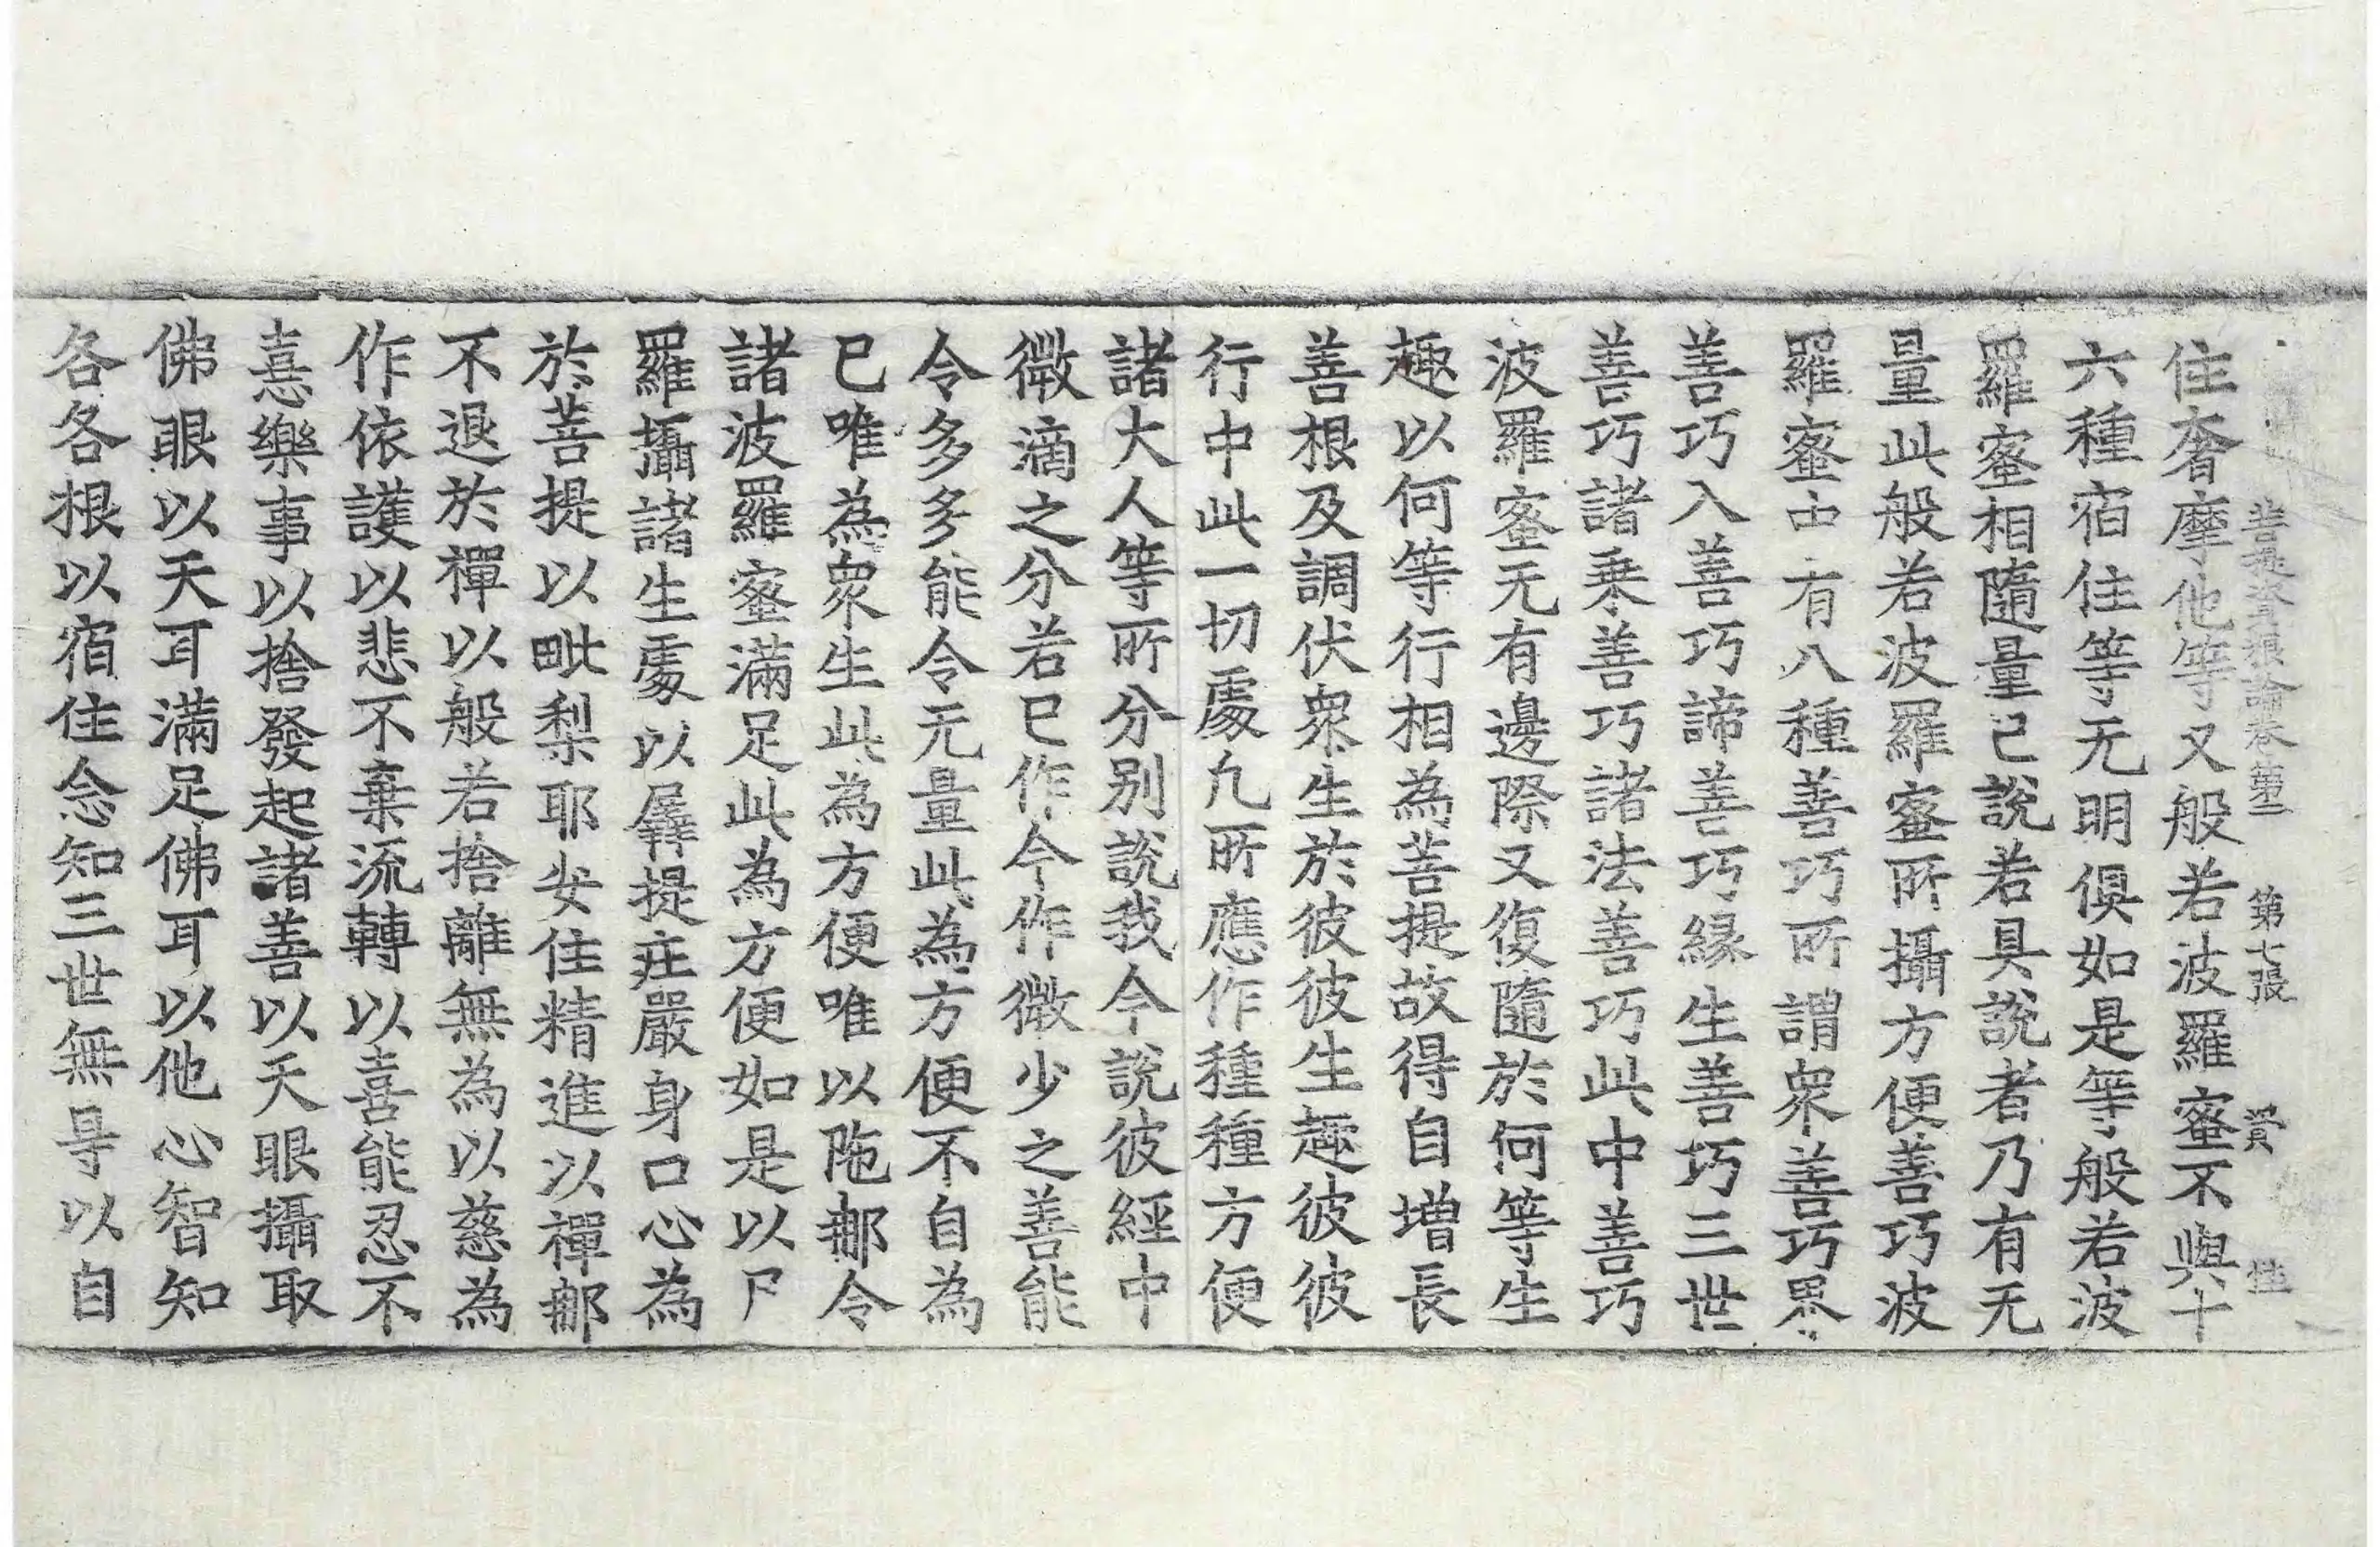 菩提資糧論卷第三 第七張 賞 佳
住奢摩他等又般若波羅蜜不與十
六種宿住等无明俱如是等般若波
羅蜜相隨量已說若具說者乃有无
量此般若波羅蜜所攝方便善巧波
羅蜜中有八種善巧所謂衆善巧界
善巧入善巧諦善巧緣生善巧三世
善巧諸乘善巧諸法善巧此中善巧
波羅蜜无有邊際又復隨於何等生
趣以何等行相為菩提故得自增長
善根及調伏衆生於彼彼生趣彼彼
行中此一切處九所應作種種方便
諸大人等所分別說我今說彼經中
微滴之分若已作今作微少之善能
令多多能令无量此為方便不自為
已唯為衆生此為方便唯以陁那令
諸波羅蜜滿足此為方便如是以尸
羅攝諸生處以羼提莊嚴身口心為
於菩提以毗梨耶安住精進以禪那
不退於禪以般若捨離無為以慈為
作依護以悲不棄流轉以喜能忍不
憙樂事以捨發起諸善以天眼攝取
佛眼以天耳滿足佛耳以他心智知
各各根以宿住念知三世無㝵以自